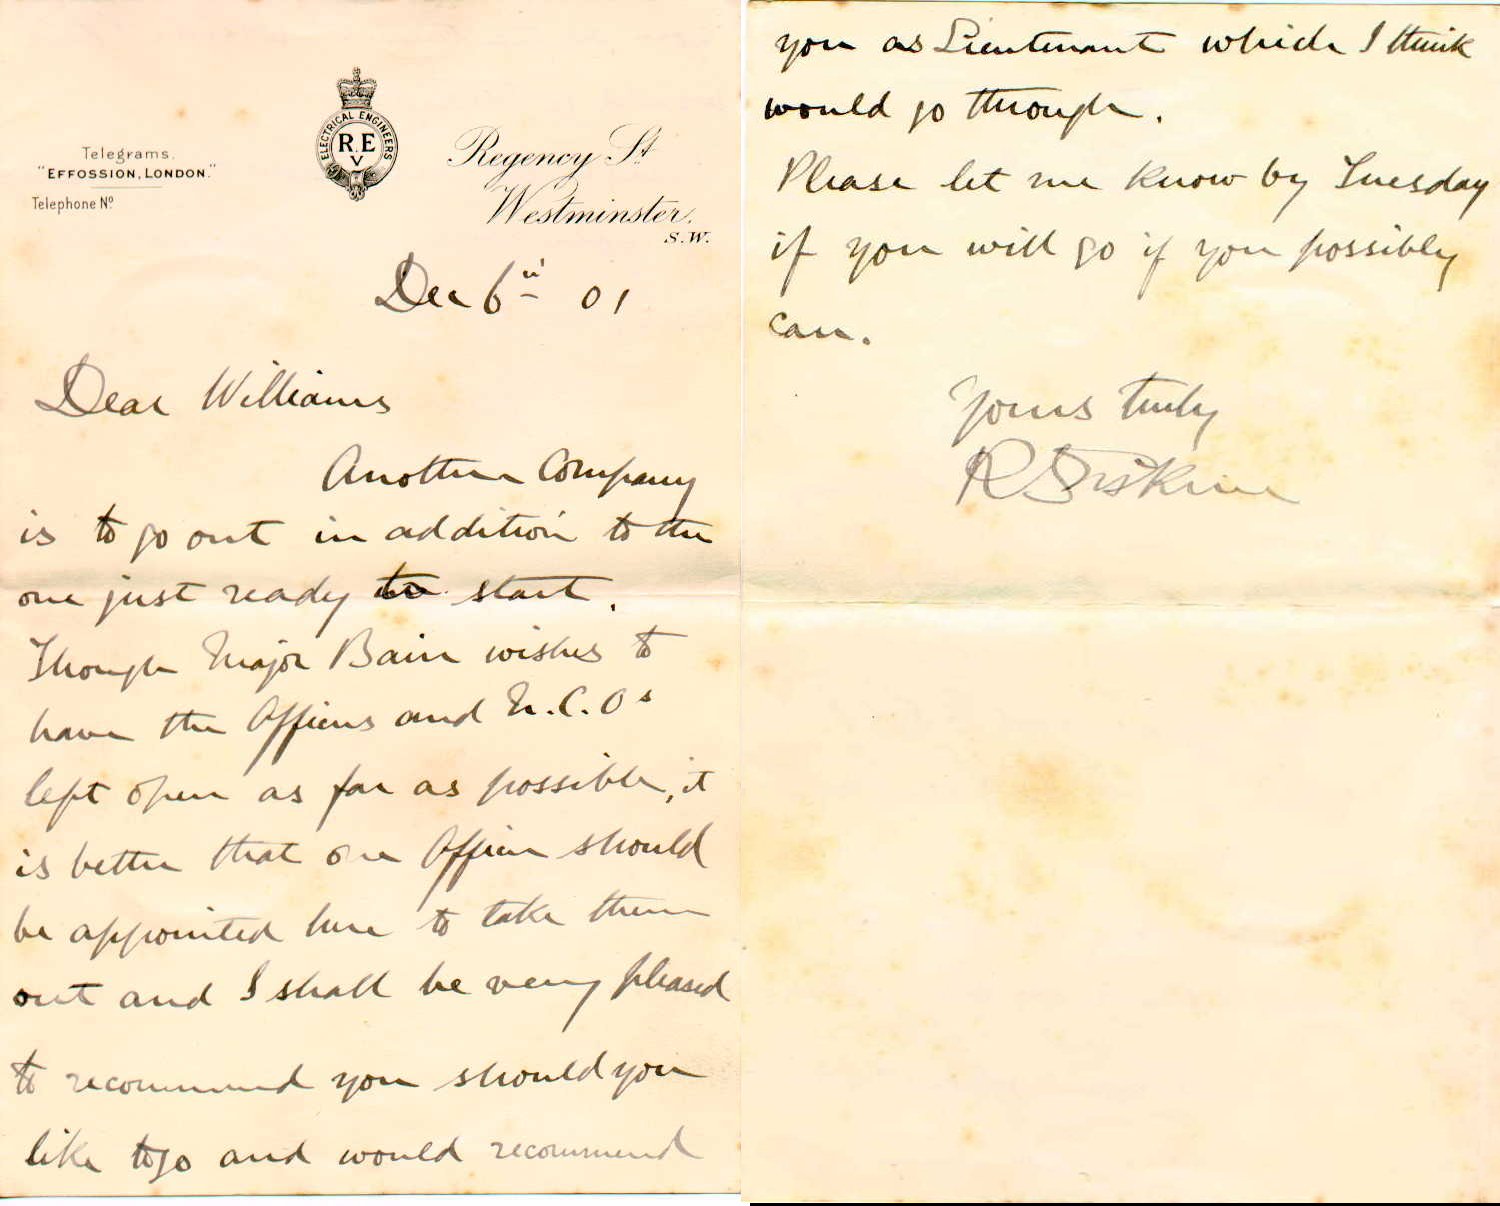 Telegrams.
"EFFOSSION, LONDON."
Telephone Nº
ELECTRICAL ENGINEERS
R.E
V
Regency St
Westminster.
S.W.
Dec 6th 01
Dear Williams
Another Company
is to go out in addition to the
one just ready to start.
Though Major Bain wishes to
have the Officers and N.C.Os
left open as far as possible, it
is better that one Officer should
be appointed here to take them
out and I shall be very pleased
to recommend you should you
like to go and would recommend
you as Lieutenant which I think
would go through.
Please let me know by Tuesday
if you will go if you possibly
can.
Yours truly
R Erskine